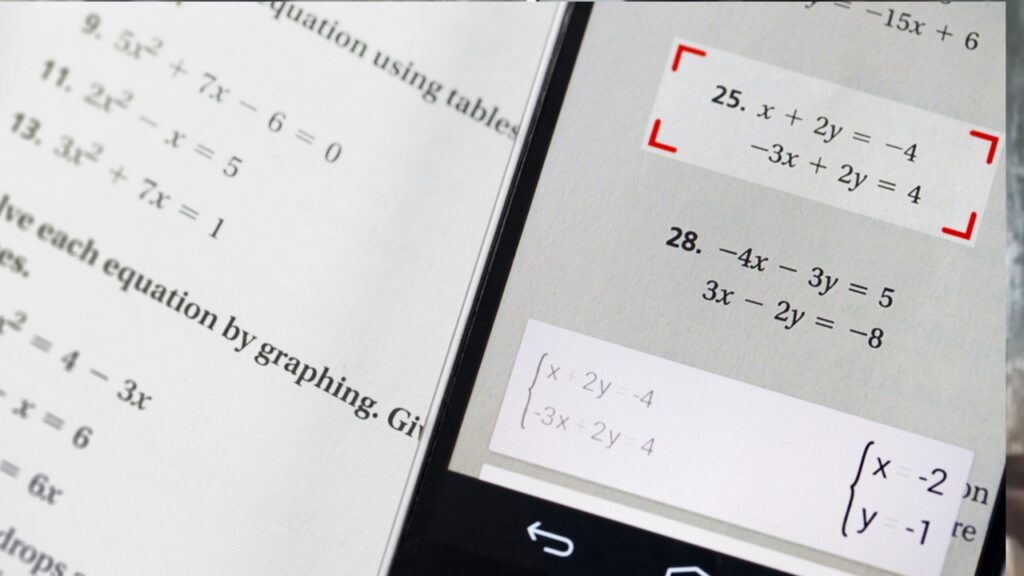 equation using tables
9. 5x² + 7x − 6 = 0
11. 2x² − x = 5
13. 3x² + 7x = 1
each equation by graphing.
x² = 4 − 3x
x = 6
= 6x
drops
= −15x + 6
25. x + 2y = −4
−3x + 2y = 4
28. −4x − 3y = 5
3x − 2y = −8
x + 2y = -4
-3x + 2y = 4
x = -2
y = -1